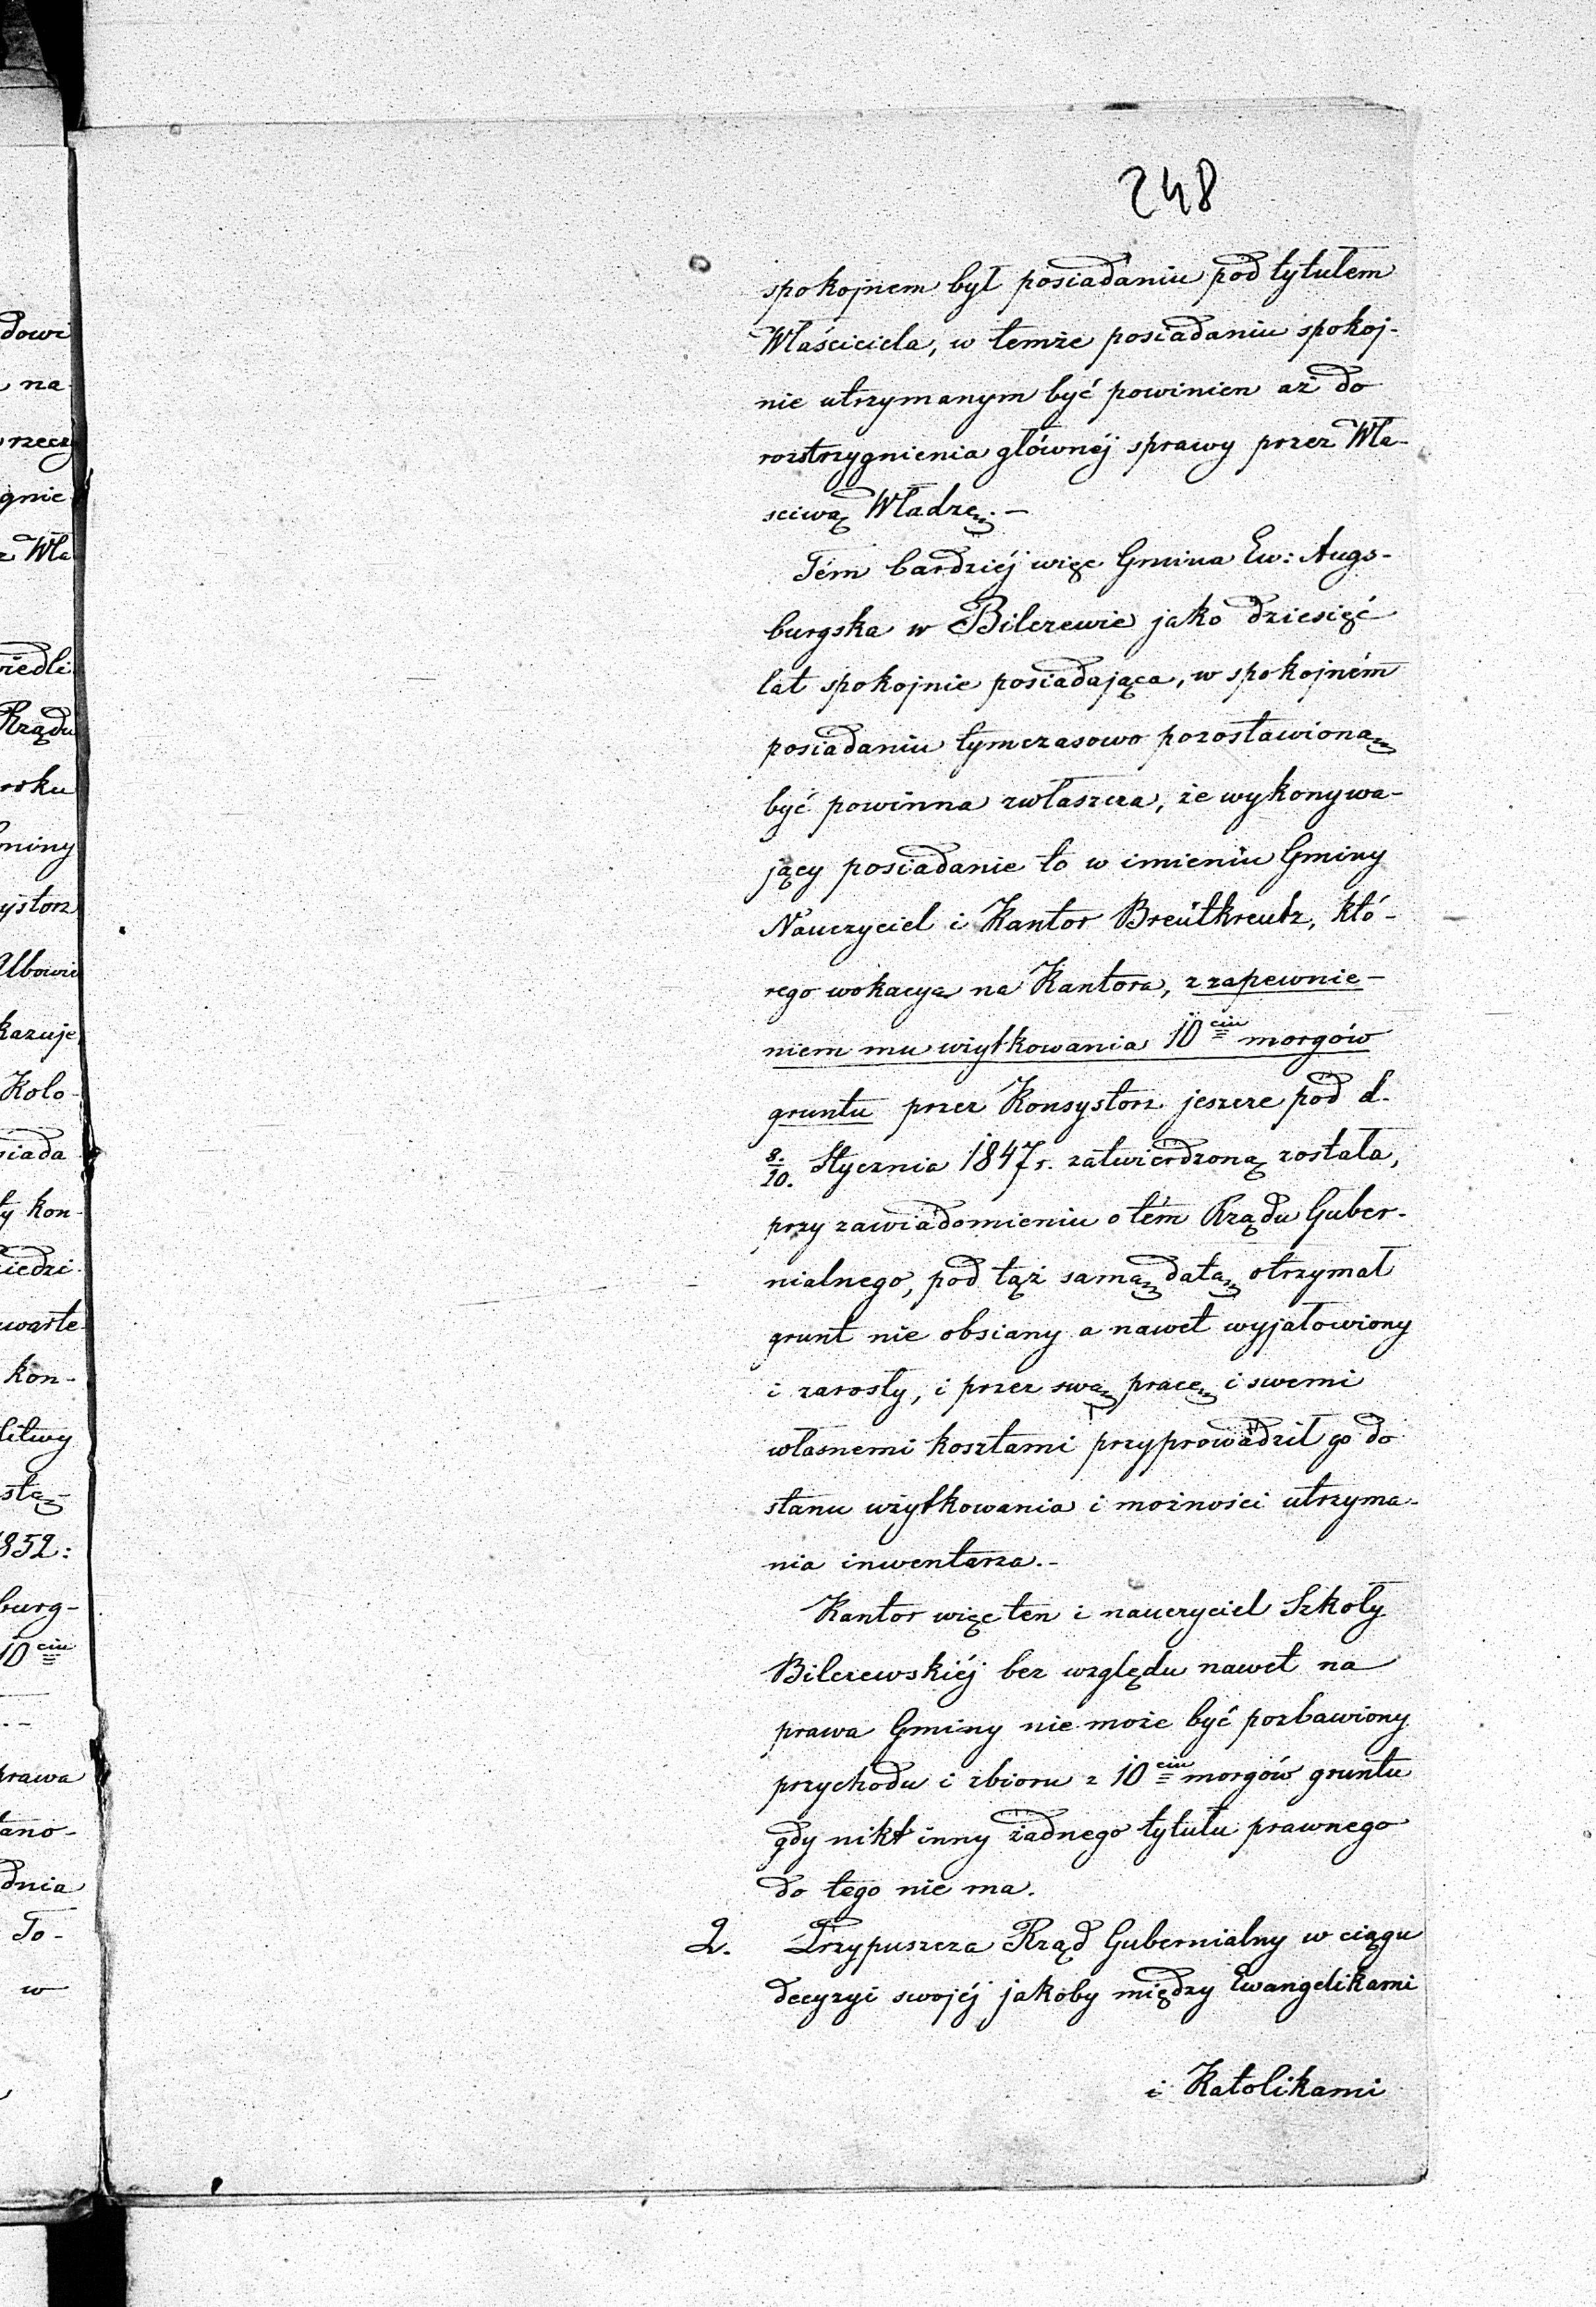 248
spokojnem był posiadaniu pod tytułem
Właściciela, w temże posiadaniu spokoj-
nie utrzymanym być powinien aż do
rozstrzygnienia głównéj sprawy przez Wła-
sciwą Władzę.-
Tém bardziéj więc Gmina Ew: Augs-
burgska w Bilczewie jako dziesięć
lat spokojnie posiadająca, w spokojném
posiadaniu tymczasowo pozostawioną
być powinna zwłaszcza, że wykonywa-
jący posiadanie to w imieniu Gminy
Nauczyciel i Kantor Breütkreutz, któ-
rego wokacya na Kantora, z zapewnie-
niem mu użytkowania 10ciu morgów
gruntu przez Konsystorz jeszcze pod d.
8./20. Stycznia 1847 r. zatwierdzoną została,
przy zawiadomieniu o tém Rządu Guber-
nialnego, pod tąż samą datą otrzymał
grunt nie obsiany a nawet wyjałowiony
i zarosły, i przez swą pracę i swemi
własnemi kosztami przyprowadził go do
stanu użytkowania i możności utrzyma-
nia inwentarza.-
Kantor więc ten i nauczyciel Szkoły
Bilczewskiéj bez względu nawet na
prawa Gminy nie może być pozbawiony
przychodu i zbioru z 10ciu morgów gruntu
gdy nikt inny żadnego tytułu prawnego
do tego nie ma.
2. Przypuszcza Rząd Gubernialny w ciągu
decyzyi swojéj jakoby między Ewangelikami
i Katolikami
dowi
na
rzeczy
gnie
z Wła
wiedli
Rządu
roku
Gminy
systorz
Albowie
kazuje
Kolo-
siada
ty kon-
iedzi
warte
kon-
litwy
stą-
1852:
burg-
10ciu
prawa
tano-
dnia
To-
w